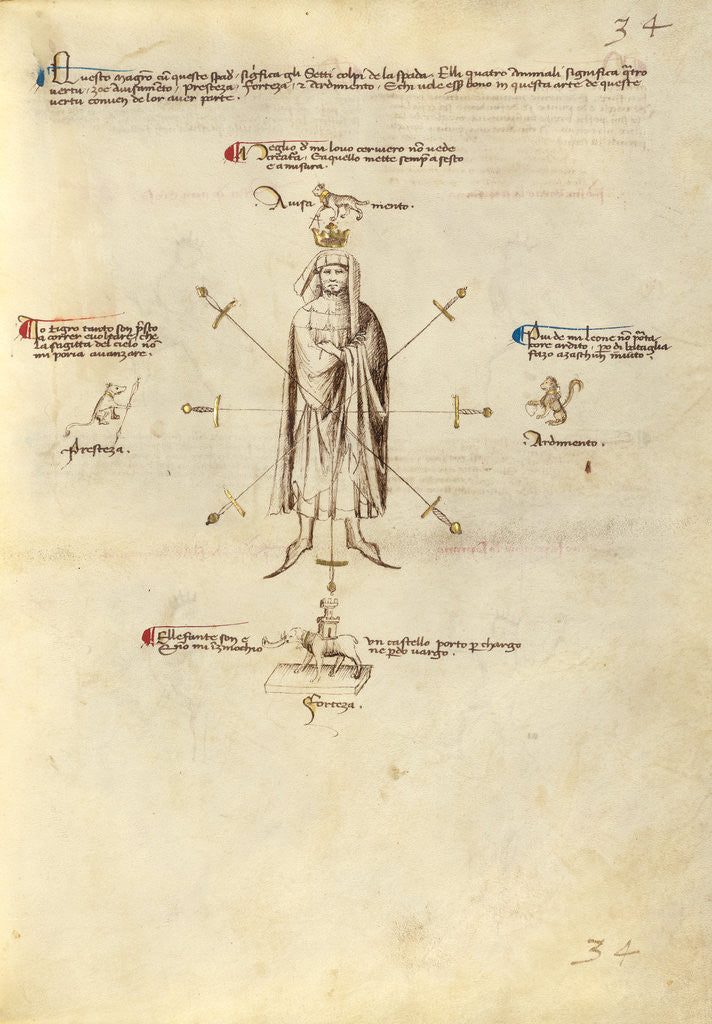 34
Questo magro cū queste spad sigifica gli Setti colpi de la spada. Elli quatro animali significa q̄tro
vertu, zoe avisamēto, Presteza, Forteza, & Ardimento. E chi vole ess bono in questa arte de queste
vertu conven de lor aver parte.
Meglio d mi lovo cerviero nō vede
creatura, E aquello mette semp a sesto
e a misura.
Avisa mento.
Io tigro tanto son p̄sto
a correr e voltare, che
la sagitta del cielo nō
mi poria avanzare.
Presteza.
Piu de mi leone nō porta
core ardito, po di bataglia
fazo a zaschun invito.
Ardimento.
Ellefante son e un castello porto p chargo
E nō mi īzinochio ne pdo vargo.
Forteza.
34